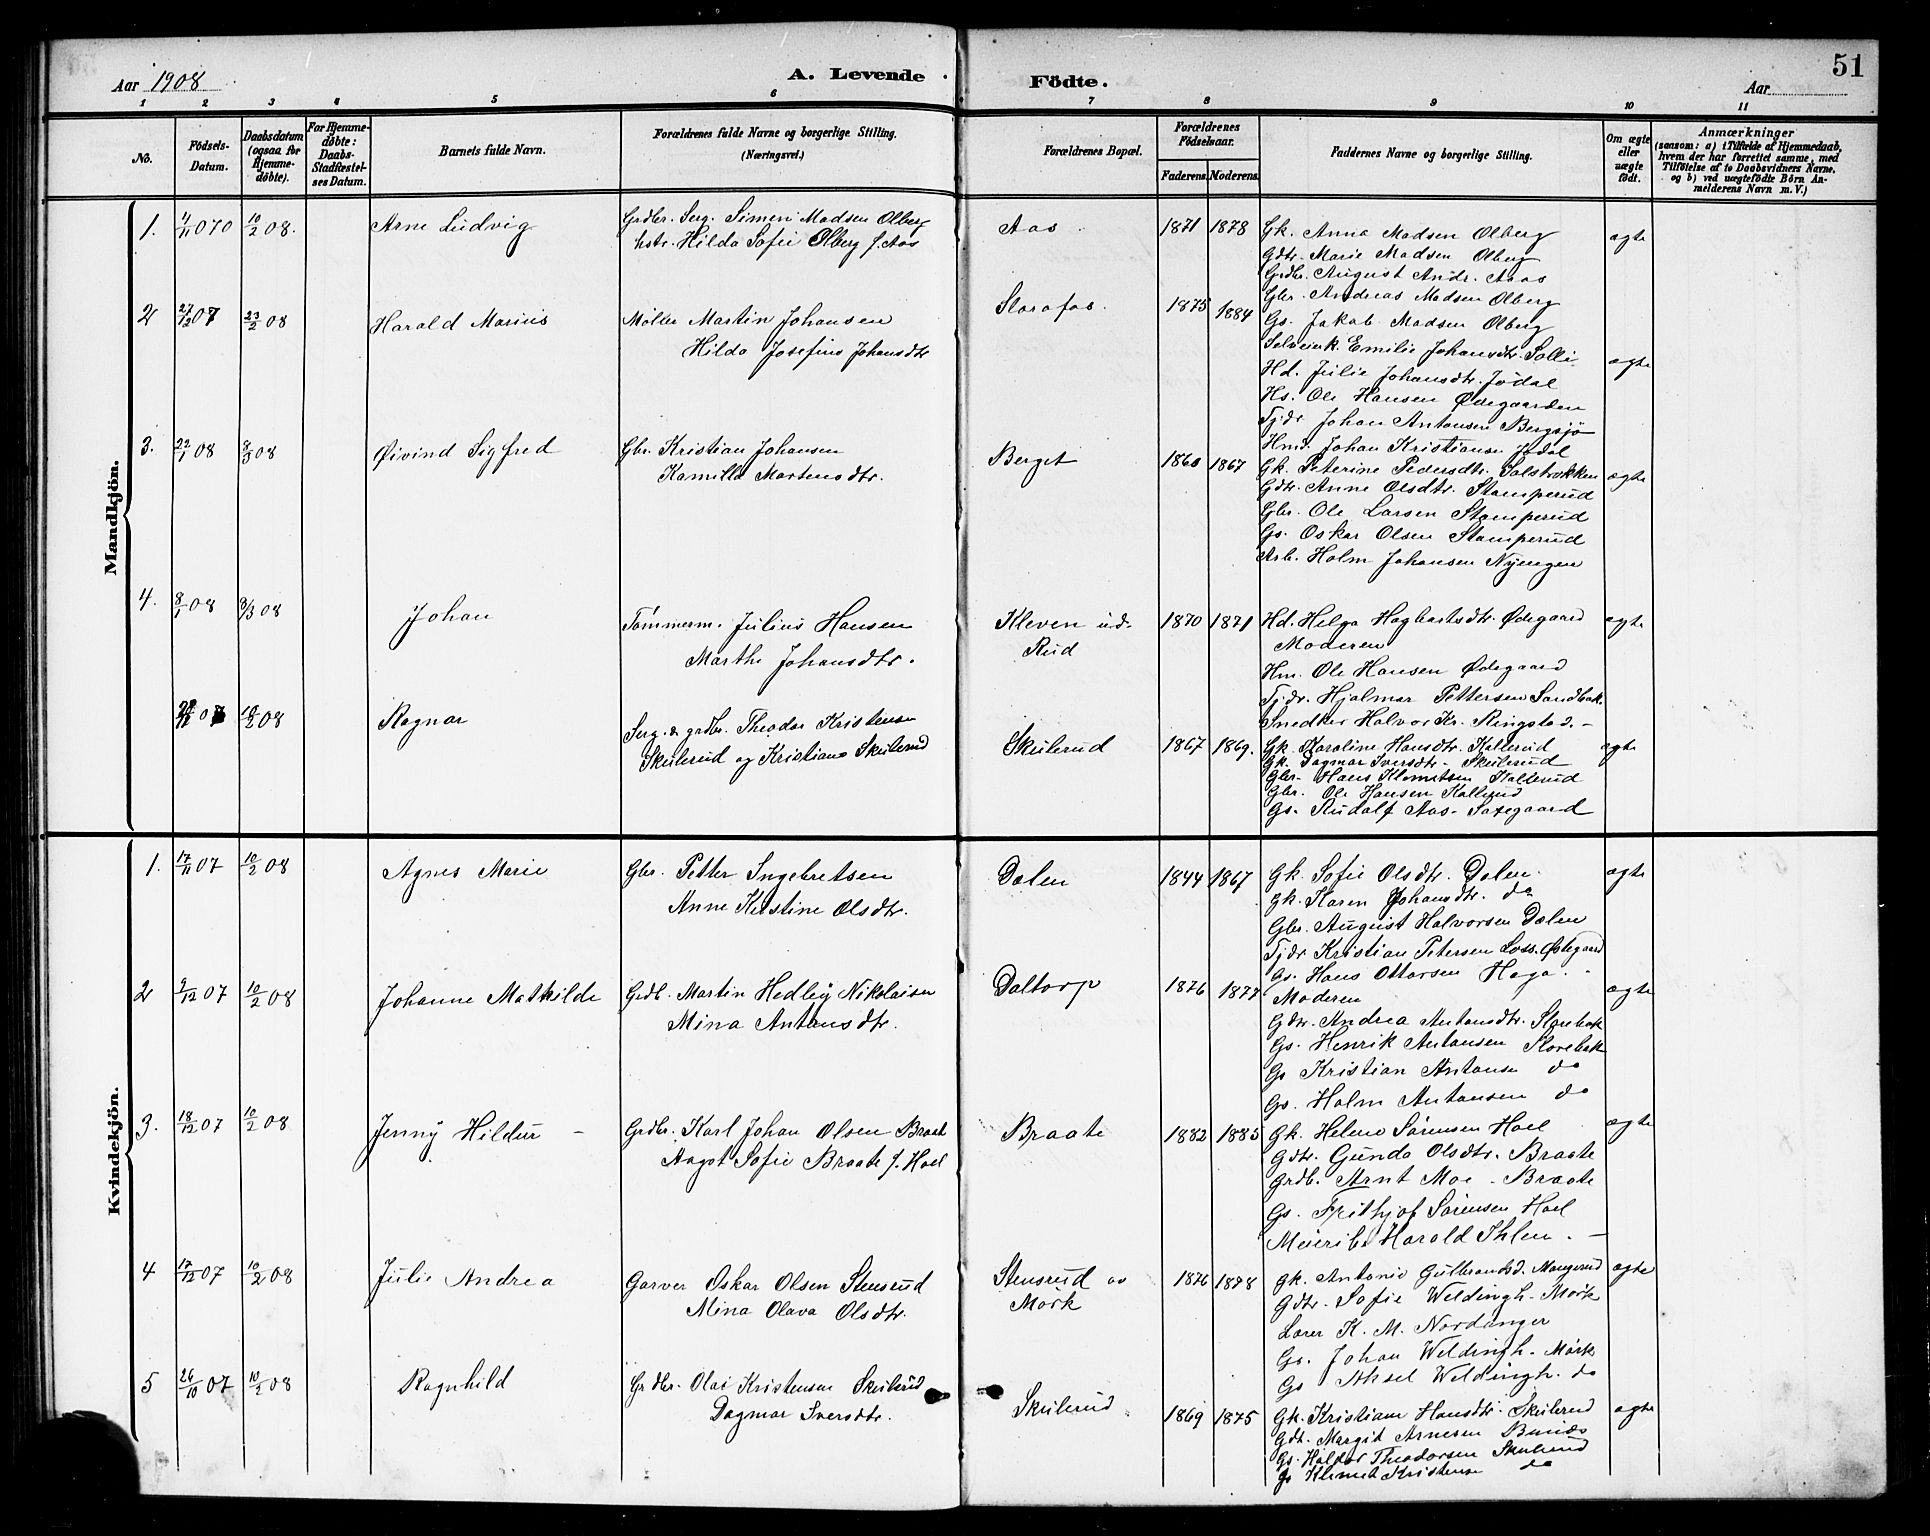 51
Aar 1908
A. Levende
Födte.
Aar
1 2 3 4 5 6 7 8 9 10 11
No.
Födsels-Datum.
Daabsdatum (ogsaa for Hjemme-döbte).
For Hjemme-döbte: Daabs-Stadfæstel-ses Datum.
Barnets fulde Navn.
Forældrenes fulde Navne og borgerlige Stilling.
(Næringsvei.)
Forældrenes Bopæl.
Forældrenes Födselsaar.
Faderens. Moderens.
Faddernes Navne og borgerlige Stilling.
Om ægte eller uægte födt.
Anmærkninger
(saasom: a) i Tilfælde af Hjemmedaab,
hvem der har forrettet samme, med
Tilföielse af to Daabsvidners Navne,
og b) ved uægtefödte Börn An-
melderens Navn m. V.)
Mandkjön.
1. 10/2 08. Arne Ludvig
Grdbr. Serg. Simen Madsen Olberg
hstr. Hilda Sofie Olberg f. Aas
Aas 1871 1878
Gk. Anna Madsen Olberg
Gdtr. Marie Madsen Olberg
Grdbr. August Andr. Aaas
Gbr. Andreas Madsen Olberg
Gs. Jakob Madsen Olberg
ægte
2 27/12 07 23/2 08 Harald Marius
Møller Martin Johansen
Hilda Josefine Johansdtr
Storofos. 1875 1884
Selveierk. Emilie Johansdtr. Solli
Hd. Julie Johansdtr. Jödal
Hs. Ole Hansen Ødegaarden
Tjdr Johan Antonsen Bergsjø
Hmd. Johan Kristiansen Jødal
ægte
3. 22/1 08 8/3 08 Øivind Sigfred
Gbr. Kristian Johansen
Kamilla Martensdtr.
Berget 1867
Gk. Peterine Pedersdtr. Solstrokken
Gdtr. Anne Olsdtr. Stamperud
Gbr. Ole Larsen Stamperud
Gs. Oskar Olsen Stamperud
Arb. Holm Johansen Nyengen
ægte
4. 8/1 08 8/3 08 Johan
Tömmerm. Julius Hansen
Marthe Johansdtr.
Kleven ud.
Rud
1870 1871
Hd. Helga Hagbartsdtr. Ødegaard
Moderen
Hm. Ole Hansen Ødegaard
Tjdr. Hjalmar Pettersen Sandbak.
Snedker Halvor Kr. Ringstad. -
ægte
07 10/2 08 Ragnar
Serg. & grdbr. Theodor Kristensen
Skulerud og Kristiane Skulerud
Skulerud 1867 1869.
Gk. Karoline Hansdtr. Kallerud
Gk. Dagmar Iversdtr. Skulerud
Gbr. Hans Klemetsen Kallerud
Gbr. Ole Hansen Kallerud
Gs. Rudolf Aas- Saxegaard
ægte
Kvindekjön.
1. 17/11 07 10/2 08 Agnes Marie
Gbr. Petter Ingebretsen
Anne Kristine Olsdtr.
Dælen 1844 1867
Gk. Sofie Olsdtr. Dælen
Gk. Karen Johansdtr. do
Gbr. August Halvorsen Dælen
Tjdr Kristian Petersen Ødegaard
Gs. Hans Ottarsen Haga.
ægte
2 9/12 07 10/2 08 Johanne Mathilde
Grdb. Martin Hedley Nikolaisen
Mina Antonsdtr.
Daltorp 1876 1877
Moderen
Gdtr. Andrea Antonsdtr. Storebak
Gs. Henrik Antonsen Storebak
Gs Kristian Antonsen do
Gs. Holm Antonsen do
ægte
3. 18/12 07 10/2 08 Jenny Hildur -
Grdbr. Karl Johan Olsen Braate
Aagot Sofie Braate f. Hoel
Braate 1882 1885
Gk. Helene Sørensen Hoel
Gdtr. Gunda Olsdtr. Braate
Grdb. Arnt Moe - Braate
Gs. Frithjof Sørensen Hoel
Harald Ihlen. -
ægte
4 17/12 07 10/2 08 Julie Andrea
Garver Oskar Olsen Stensrud
Mina Olava Olsdtr.
Stensrud
Mörk
1876 1878
Gk. Antonie Gulbrandsd. Mangerud
Gdtr. Sofie Weldingh. Mörk
Lærer K. M. Nordanger
Gs. Johan Weldingh. Mørk
Gs Aksel Weldingh. do
ægte
5 26/10 07 10/2 08 Ragnhild
Grdbr. Olai Kristensen Skulerud
Dagmar Iversdtr.
Skulerud 1869 1875
Gk. Kristiane Hansdtr. Skulerud
Gdt. Margit Arnesen
Gs. Haldor Theodorsen Skulerud
Gs Klemet Kristensen do
ægte